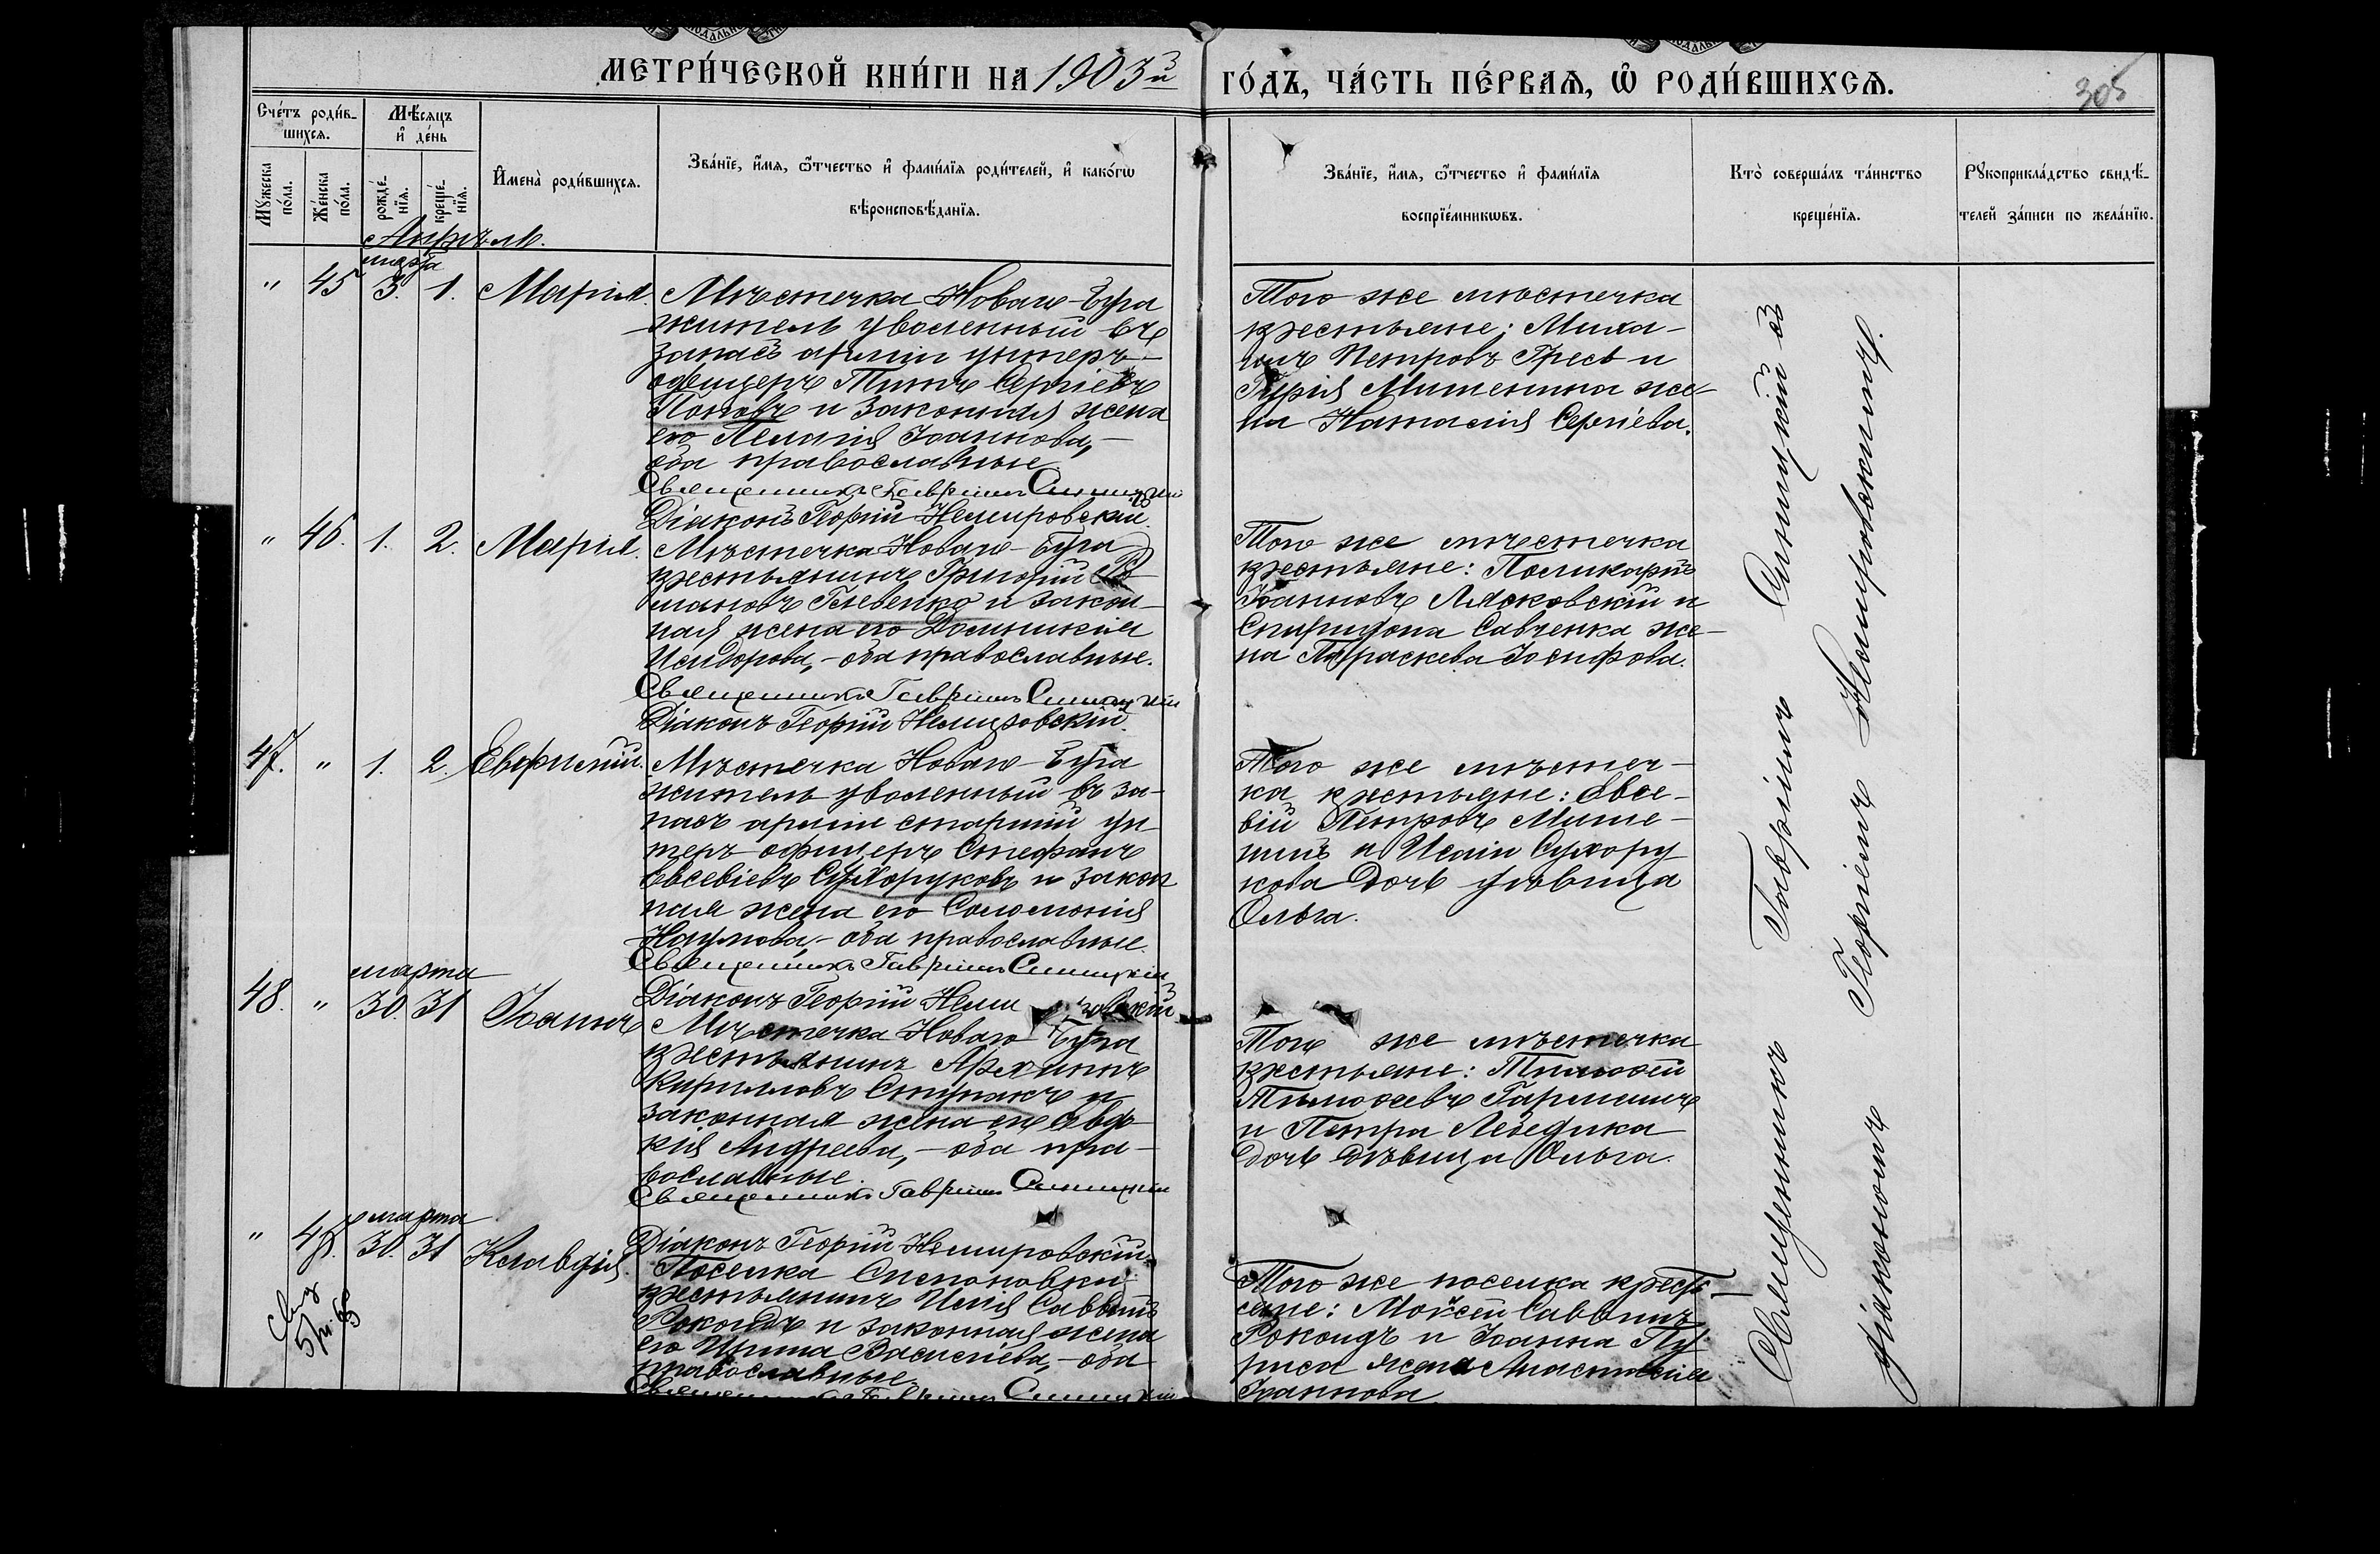 МЕТРИ́ЧЕСКОЙ КНИ́ГИ НА 1903й ГО́ДЪ, ЧА́СТЬ ПЕ́РВАѦ, Ѡ҆ РОДИ́ВШИХСѦ.
305
Сче́тъ роди́в-
шихсѧ.
Мѣ́сѧцъ
и҆ де́нь
Мꙋжеска
по́ла.
Же́нска
по́ла.
рожде́-
нїѧ.
креще́-
нїѧ.
И҆мена̀ роди́вшихсѧ.
Зва́нїе, и҆́мѧ, ѻ҆́тчество и҆ фами́лїѧ роди́телей, и҆ како́гѡ
вѣроисповѣ́данїѧ.
Зва́нїе, и҆́мѧ, ѻ҆́тчество и҆ фами́лїѧ
воспрїе́мникѡвъ.
Кто̀ соверша́лъ та́инство
креще́нїѧ.
Рꙋкоприкла́дство свидѣ́-
телей за́писи по жела́нїю.
Апрѣль.
марта
" 45 3. 1. Марія.
Мѣстечка Новаго-Буга
житель уволенный въ
запасъ арміи унтеръ-
офицеръ Титъ Сергіевъ
Поповъ и законная жена
его Пелагія Іоаннова,-
оба православные.
Священникъ Гавріилъ Синицкій
Діаконъ Георгій Немировскій.
Того же мѣстечка
крестьяне: Миха-
илъ Петровъ Гресь и
Гурія Мишенина же-
на Наталія Сергіева.
" 46. 1. 2. Марія.
Мѣстечка Новаго-Буга
крестьянинъ Григорій Ро-
мановъ Глевенко и закон-
ная жена его Домникія
Исидорова,-оба православные.
Священникъ Гавріилъ Синицкій
Діаконъ Георгій Немировскій.
Того же мѣстечка
крестьяне: Поликарпъ
Іоанновъ Лясковскій и
Спиридона Савченка же-
на Параскева Іосифова.
47. " 1. 2. Евфимій.
Мѣстечка Новаго-Буга
житель уволенный въ за-
пасъ арміи старшій ун-
теръ-офицеръ Стефанъ
Евсевіевъ Сухоруковъ и закон
ная жена его Соломонія
Наумова,-оба православные.
Священникъ Гавріилъ Синицкій
Діаконъ Георгій Немировскій
Того же мѣстеч-
ка крестьяне: Евсе-
вій Петровъ Мише-
нинъ и Исаіи Сухору
кова дочь дѣвица
Ольга.
марта
48. " 30. 31 Іоаннъ
Мѣстечка Новаго Буга
крестьянинъ Архиппъ
Кирилловъ Ступакъ и
законная жена его Евдо
кія Андреева,-оба пра-
вославные.
Священникъ Гавріилъ Синицкій
Діаконъ Георгій Немировскій.
Того же мѣстечка
крестьяне: Тимоѳей
Тимоѳеевъ Гармашъ
и Петра Лебедика
дочь дѣвица Ольга.
марта
" 49. 30. 31 Клавдія.
Поселка Степановки
крестьянинъ Илія Саввинъ
Рокондъ и законная жена
его Ирина Василіева,-оба
православные.
Священникъ Гавріилъ Синицкій
Того же поселка кресть-
яне: Моѵсей Саввинъ
Рокондъ и Іоанна Пу
риса жена Анастасія
Іоаннова.
Священникъ Гавріилъ Синицкій съ
діакономъ Георгіемъ Немировскимъ.